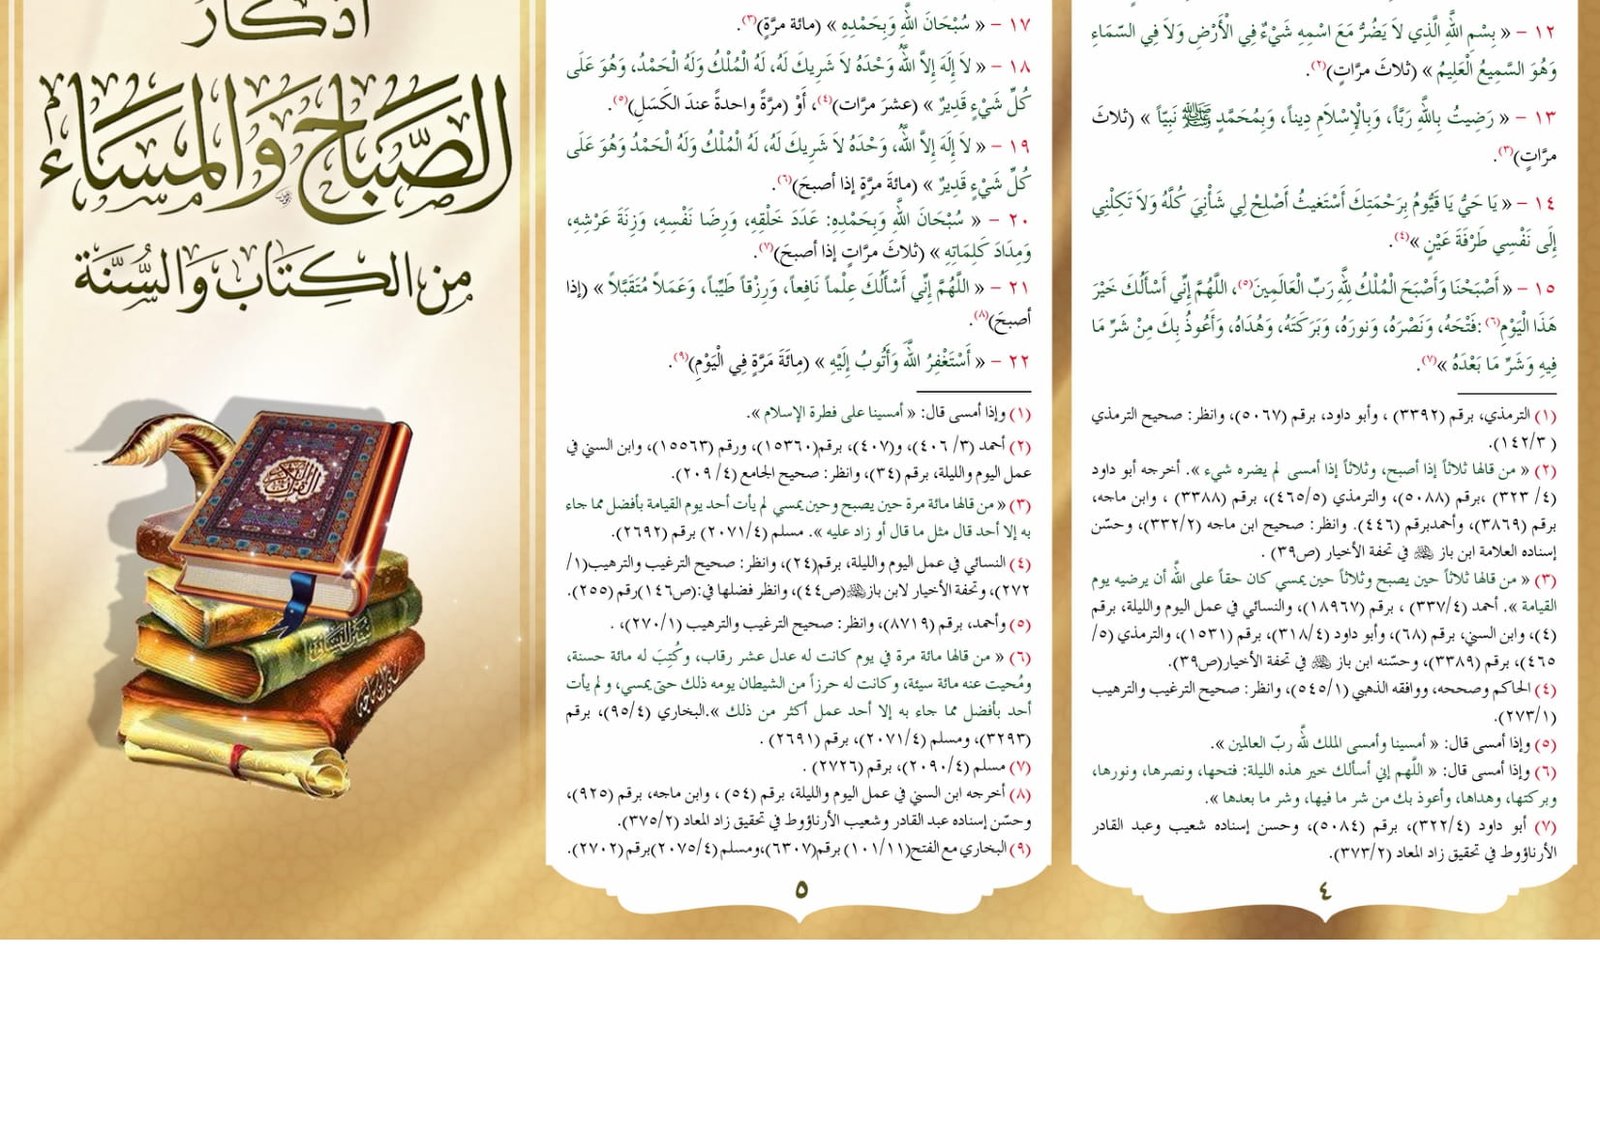 ١٢ - « بِسْمِ اللَّهِ الَّذِي لاَ يَضُرُّ مَعَ اسْمِهِ شَيْءٌ فِي الْأَرْضِ وَلاَ فِي السَّمَاءِ
وَهُوَ السَّمِيعُ الْعَلِيمُ » (ثلاثَ مرَّاتٍ)(٢).
١٣ - « رَضِيتُ بِاللَّهِ رَبَّاً، وَبِالْإِسْلَامِ دِيناً، وَبِمُحَمَّدٍ ﷺ نَبِيّاً » (ثلاثَ
مرَّاتٍ)(٣).
١٤ - « يَا حَيُّ يَا قَيُّومُ بِرَحْمَتِكَ أَسْتَغيثُ أَصْلِحْ لِي شَأْنِيَ كُلَّهُ وَلاَ تَكِلْنِي
إِلَى نَفْسِي طَرْفَةَ عَيْنٍ »(٤).
١٥ - « أَصْبَحْنَا وَأَصْبَحَ الْمُلْكُ لِلَّهِ رَبِّ الْعَالَمِينَ(٥)، اللَّهُمَّ إِنِّي أَسْأَلُكَ خَيْرَ
هَذَا الْيَوْمِ(٦):فَتْحَهُ، وَنَصْرَهُ، وَنورَهُ، وَبَرَكَتَهُ، وَهُدَاهُ، وَأَعُوذُ بِكَ مِنْ شَرِّ مَا
فِيهِ وَشَرِّ مَا بَعْدَهُ »(٧).
(١) الترمذي، برقم (٣٣٩٢) ، وأبو داود، برقم (٥٠٦٧)، وانظر: صحيح الترمذي
(١٤٢/٣).
(٢) « من قالها ثلاثاً إذا أصبح، وثلاثاً إذا أمسى لم يضره شيء ». أخرجه أبو داود
(٤/ ٣٢٣) ،برقم (٥٠٨٨)، والترمذي (٤٦٥/٥)، برقم (٣٣٨٨) ، وابن ماجه،
برقم (٣٨٦٩)، وأحمدبرقم (٤٤٦). وانظر: صحيح ابن ماجه (٣٣٢/٢)، وحسّن
إسناده العلامة ابن باز في تحفة الأخيار (ص٣٩) .
(٣) « من قالها ثلاثاً حين يصبح وثلاثاً حين يمسي كان حقاً على اللَّه أن يرضيه يوم
القيامة ». أحمد (٣٣٧/٤) ، برقم (١٨٩٦٧)، والنسائي في عمل اليوم والليلة، برقم
(٤)، وابن السني، برقم (٦٨)، وأبو داود (٣١٨/٤)، برقم (١٥٣١)، والترمذي (٥/
٤٦٥)، برقم (٣٣٨٩)، وحسّنه ابن باز في تحفة الأخيار(ص٣٩).
(٤) الحاكم وصححه، ووافقه الذهبي (٥٤٥/١)، وانظر: صحيح الترغيب والترهيب
(٢٧٣/١).
(٥) وإذا أمسى قال: « أمسينا وأمسى الملك للَّه ربّ العالمين ».
(٦) وإذا أمسى قال: « اللَّهم إني أسألك خير هذه الليلة: فتحها، ونصرها، ونورها،
وبركتها، وهداها، وأعوذ بك من شر ما فيها، وشر ما بعدها ».
(٧) أبو داود (٣٢٢/٤)، برقم (٥٠٨٤)، وحسن إسناده شعيب وعبد القادر
الأرناؤوط في تحقيق زاد المعاد (٣٧٣/٢).
٤
١٧ - « سُبْحَانَ اللَّهِ وَبِحَمْدِهِ » (مائة مرَّة)(٣).
١٨ - « لاَ إِلَهَ إِلاَّ اللَّهُ وَحْدَهُ لاَ شَرِيكَ لَهُ، لَهُ الْمُلْكُ وَلَهُ الْحَمْدُ، وَهُوَ عَلَى
كُلِّ شَيْءٍ قَدِيرٌ » (عشرَ مرَّات)(٤)، أَوْ (مرَّةً واحدةً عندَ الكَسَلِ)(٥).
١٩ - « لاَ إِلَهَ إِلاَّ اللَّهُ، وَحْدَهُ لاَ شَرِيكَ لَهُ، لَهُ الْمُلْكُ وَلَهُ الْحَمْدُ وَهُوَ عَلَى
كُلِّ شَيْءٍ قَدِيرٌ » (مائةَ مرَّةٍ إذا أصبحَ)(٦).
٢٠ - « سُبْحَانَ اللَّهِ وَبِحَمْدِهِ: عَدَدَ خَلْقِهِ، وَرِضَا نَفْسِهِ، وَزِنَةَ عَرْشِهِ،
وَمِدَادَ كَلِمَاتِهِ » (ثلاثَ مرَّاتٍ إذا أصبحَ)(٧).
٢١ - « اللَّهُمَّ إِنِّي أَسْأَلُكَ عِلْماً نَافِعاً، وَرِزْقاً طَيِّباً، وَعَمَلاً مُتَقَبَّلاً » (إذا
أصبحَ)(٨).
٢٢ - « أَسْتَغْفِرُ اللَّهَ وَأَتُوبُ إِلَيْهِ » (مِائَةَ مَرَّةٍ فِي الْيَوْمِ)(٩).
(١) وإذا أمسى قال: « أمسينا على فطرة الإسلام ».
(٢) أحمد (٣/ ٤٠٦)، و(٤٠٧)، برقم(١٥٣٦٠)، ورقم (١٥٥٦٣)، وابن السني في
عمل اليوم والليلة، برقم (٣٤)، وانظر: صحيح الجامع (٤/ ٢٠٩).
(٣) « من قالها مائة مرة حين يصبح وحين يمسي لم يأت أحد يوم القيامة بأفضل مما جاء
به إلا أحد قال مثل ما قال أو زاد عليه ». مسلم (٢٠٧١/٤) برقم (٢٦٩٢).
(٤) النسائي في عمل اليوم والليلة، برقم(٢٤)، وانظر: صحيح الترغيب والترهيب(١/
٢٧٢)، وتحفة الأخيار لابن باز(ص٤٤)، وانظر فضلها في:(ص١٤٦)رقم (٢٥٥).
(٥) وأحمد، برقم (٨٧١٩)، وانظر: صحيح الترغيب والترهيب (٢٧٠/١)، .
(٦) « من قالها مائة مرة في يوم كانت له عدل عشر رقاب، وكُتِبَ له مائة حسنة،
ومُحيت عنه مائة سيئة، وكانت له حرزاً من الشيطان يومه ذلك حتى يمسي، ولم يأت
أحد بأفضل مما جاء به إلا أحد عمل أكثر من ذلك ».البخاري (٩٥/٤)، برقم
(٣٢٩٣)، ومسلم (٢٠٧١/٤)، برقم (٢٦٩١) .
(٧) مسلم (٢٠٩٠/٤)، برقم (٢٧٢٦) .
(٨) أخرجه ابن السني في عمل اليوم والليلة، برقم (٥٤) ، وابن ماجه، برقم (٩٢٥)،
وحسّن إسناده عبد القادر وشعيب الأرناؤوط في تحقيق زاد المعاد (٣٧٥/٢).
(٩) البخاري مع الفتح(١٠١/١١) برقم(٦٣٠٧)،ومسلم (٢٠٧٥/٤)برقم (٢٧٠٢).
٥
أذكار
الصَّبَاحِ وَالمَسَاءِ
مِنَ الكِتَابِ وَالسُّنَّة